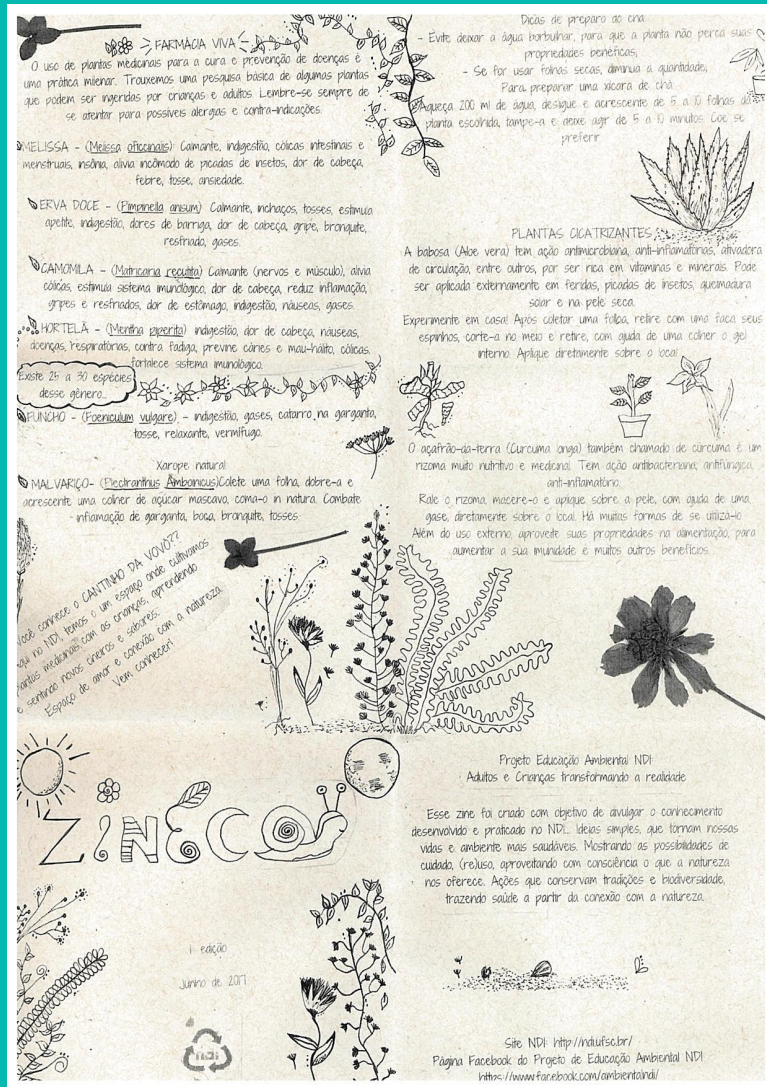 FARMÁCIA VIVA
O uso de plantas medicinais para a cura e prevenção de doenças é
uma prática milenar. Trouxemos uma pesquisa básica de algumas plantas
que podem ser ingeridas por crianças e adultos. Lembre-se sempre de
se atentar para possíveis alergias e contra-indicações.
MELISSA - (Melissa officinais): Calmante, indigestão, cólicas intestinais e
menstruais, insônia, alivia incômodo de picadas de insetos, dor de cabeça,
febre, tosse, ansiedade.
ERVA DOCE - (Pimpinella anisum) Calmante, inchaços, tosses, estimula
apetite, indigestão, dores de barriga, dor de cabeça, gripe, bronquite,
resfriado, gases.
CAMOMILA - (Matricaria recutita) Calmante (nervos e músculo), alivia
cólicas, estimula sistema imunológico, dor de cabeça, reduz inflamação,
gripes e resfriados, dor de estômago, indigestão, náuseas, gases.
HORTELÃ - (Mentha piperita) indigestão, dor de cabeça, náuseas,
doenças, respiratórias, contra fadiga, previne cáries e mau-hálito, cólicas,
fortalece sistema imunológico.
Existe 25 a 30 espécies
desse gênero...
FUNCHO - (Foeniculum vulgare) - indigestão, gases, catarro na garganta,
tosse, relaxante, vermífugo.
Xarope natural
MALVARIÇO- (Plectranthus Amboinicus)Colete uma folha, dobre-a e
acrescente uma colher de açúcar mascavo, coma-o in natura. Combate
inflamação de garganta, boca, bronquite, tosses.
Você conhece o CANTINHO DA VOVÓ??
Aqui no NDI, temos o um espaço onde cultivamos
plantas medicinais com as crianças, aprendendo
e sentindo novos cheiros e sabores.
Espaço de amor e conexão com a natureza.
Vem conhecer!
Dicas de preparo do chá
- Evite deixar a água borbulhar, para que a planta não perca suas
propriedades benéficas;
- Se for usar folhas secas, diminua a quantidade;
Para preparar uma xícara de chá
Aqueça 200 ml de água, desligue e acrescente de 5 a 10 folhas da
planta escolhida, tampe-a e deixe agir de 5 a 10 minutos. Coe se
preferir
PLANTAS CICATRIZANTES
A babosa (Aloe vera) tem ação antimicrobiana, anti-inflamatórias, ativadora
de circulação, entre outros, por ser rica em vitaminas e minerais. Pode
ser aplicada externamente em feridas, picadas de insetos, queimadura
solar e na pele seca.
Experimente em casa! Após coletar uma folha, retire com uma faca seus
espinhos, corte-a no meio e retire, com ajuda de uma colher o gel
interno. Aplique diretamente sobre o local
O açafrão-da-terra (Curcuma longa) também chamado de cúrcuma é um
rizoma muito nutritivo e medicinal. Tem ação antibacteriana, antifúngica,
anti-inflamatório.
Rale o rizoma, macere-o e aplique sobre a pele, com ajuda de uma
gase, diretamente sobre o local. Há muitas formas de se utilizá-lo
Além do uso externo, aproveite suas propriedades na alimentação, para
aumentar a sua imunidade e muitos outros benefícios.
ZINECO
1ª edição
Junho de 2017
ndi
Projeto Educação Ambiental NDI:
Adultos e Crianças transformando a realidade
Esse zine foi criado com objetivo de divulgar o conhecimento
desenvolvido e praticado no NDI... Ideias simples, que tornam nossas
vidas e ambiente mais saudáveis. Mostrando as possibilidades de
cuidado, (re)uso, aproveitando com consciência o que a natureza
nos oferece. Ações que conservam tradições e biodiversidade,
trazendo saúde a partir da conexão com a natureza.
Site NDI: http://ndi.ufsc.br/
Página Facebook do Projeto de Educação Ambiental NDI
https://www.facebook.com/ambientalndi/